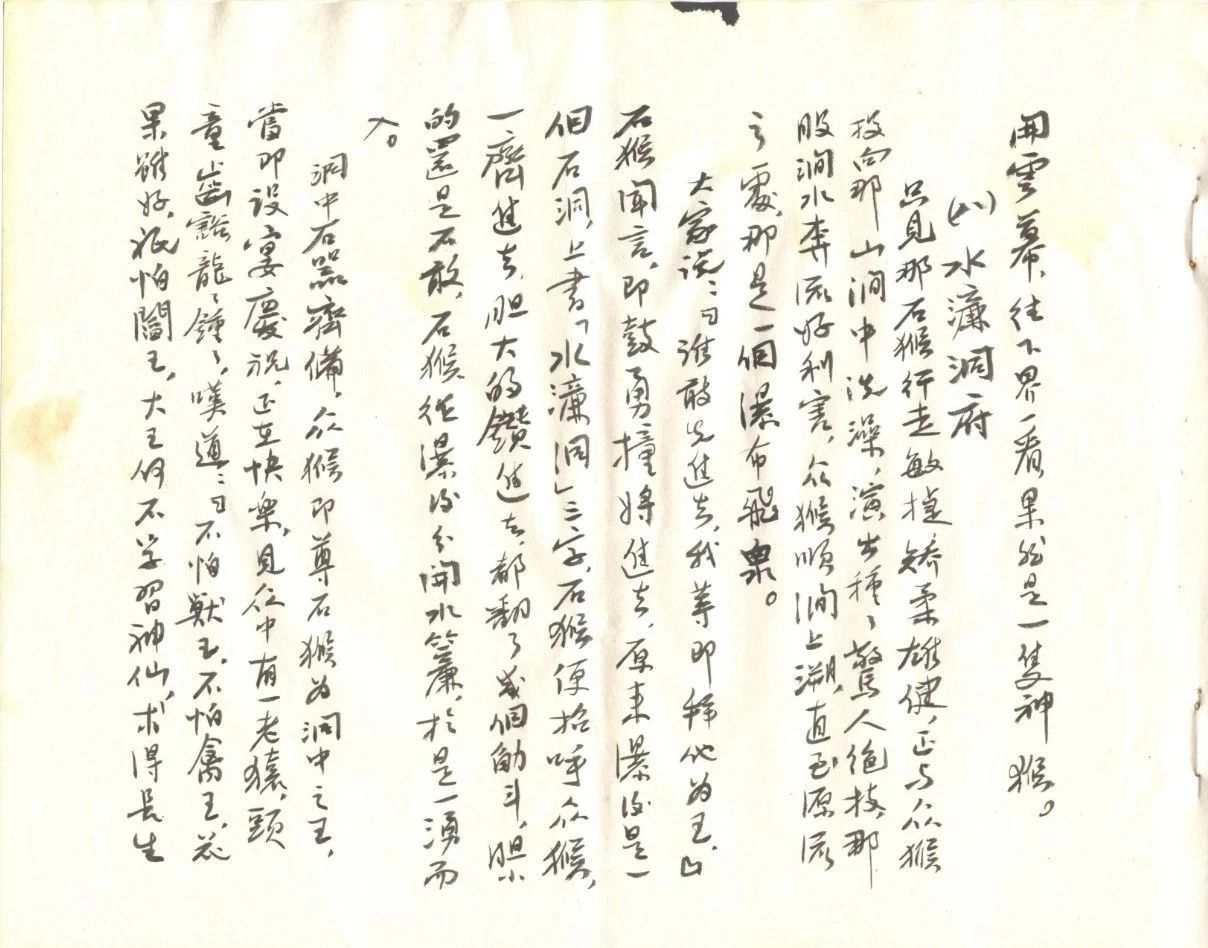 開雲幕，往下界一看，果然是一隻神猴。
(八) 水濂洞府
只見那石猴行走敏捷矯柔雄健，正与众猴
投向那山澗中洗澡，演出種々驚人絕技，那
股澗水奔流好利害，众猴順澗上溯，直至源流
之處，那是一個瀑布飛泉。
大家說：「誰敢先進去，我等即拜他為王。」
石猴聞言，即鼓勇撞將進去，原来瀑後是一
個石洞，上書「水濂洞」三字，石猴便招呼众猴，
一齊進去，胆大的鑽進去，都翻了幾個觔斗，胆小
的還是不敢，石猴從瀑後分開水簾，於是一湧而
入。
洞中石器齊備，众猴即尊石猴為洞中之王，
當即設宴慶祝，正在快樂，見众中有一老猿，頭
童齒豁龍々鍾々，嘆道：「不怕獸王，不怕禽王，花
果雖好，祇怕閻王，大王何不学習神仙，求得長生